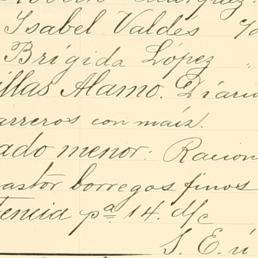 Ysabel Valdes
Brígida López "
illas Alamo. Diario
arreros con maíz.
ado menor: Racion
astor borregos finos
tencia pª 14. d/c
S. E. ú